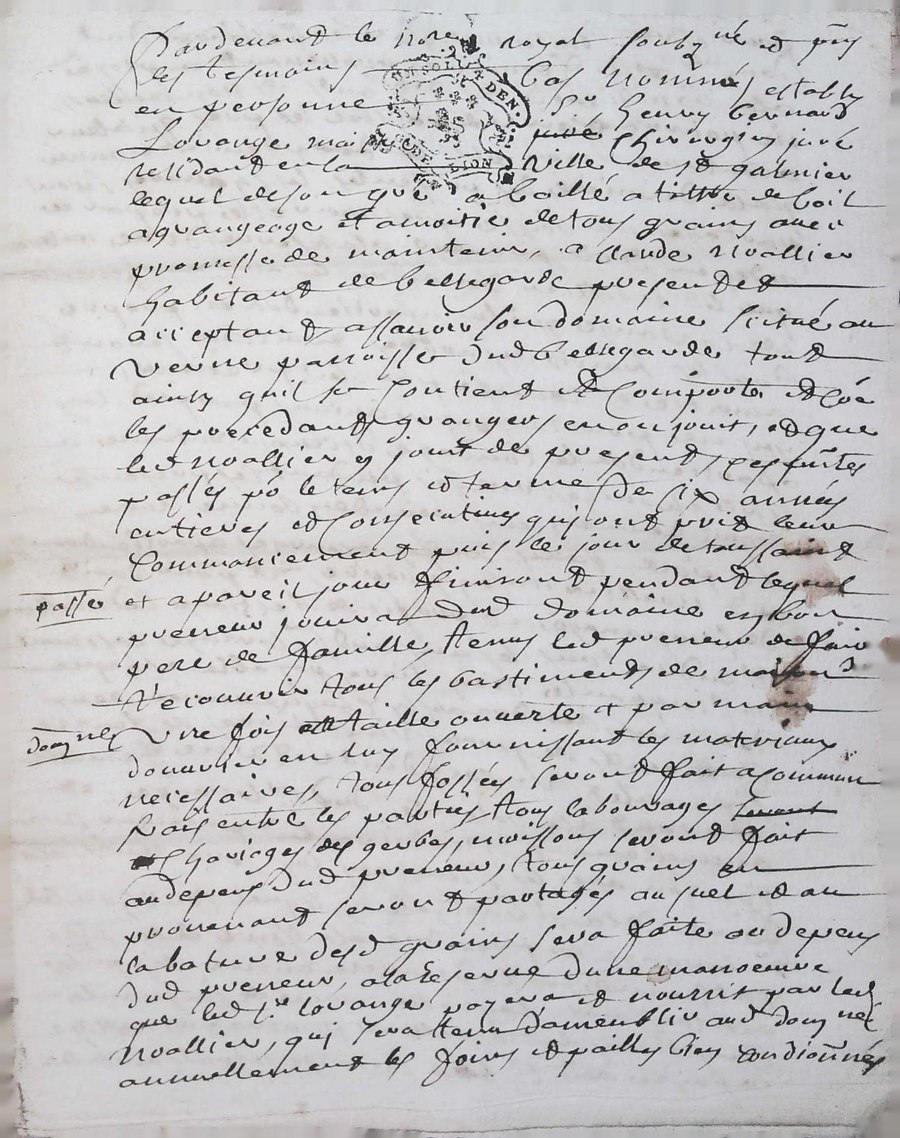 Pardevant le no.re royal soubz.né et pñs
les tesmoins bas nommés estably
en personne Sr henry bernard
Lorange me juré chirurgien juré
residant en la ville de st galmier
lequel de son gré a baillé a tiltre de bail
a grangeage et a moitié de tous grains avec
promesse de maintenir, a claude noallier
habitant de bellegarde present et
acceptant assavoir son domaine scitué au
verne parroisse dud bellegarde tout
ainsy quil se contient et comporte et que
les precedants grangers en ont jouit, et que
led noallier y jouit de present, ces pñtes
passés po le tems et terme de six années
entieres et consecutives qui ont prit leur
commancement puis le jour de toussaint
passé
et a pareil jour finiront pendant lequel
preneur jouira dud domaine en bon
pere de famille, tenu led preneur de faire
recouvrir tous les bastiments de maison
dom.nes
une fois taille ouverte et par main
douvrier en luy fournissant les materiaux
necessaires, tous fossés seront fait a commun
frais entre les parties tous labourages seront
charieges des gerbes, moissons seront fait
au depens dud preneur, tous grains en
provenant seront partagés au suel et au
la bature desd grains sera faite au depens
dud preneur, a la reserve dune manoeuvre
que led Sr lorange payera et nourrit par led
noallier, qui sera tenu dameublir aud dom.ne
annuellement les foins et pailles bien condionnés